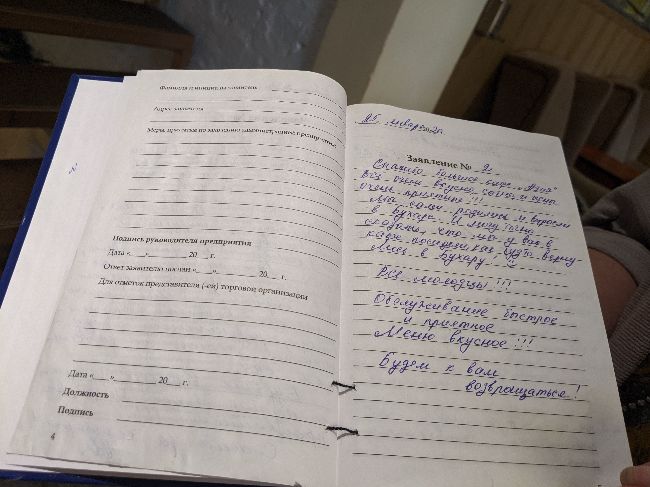 Фамилия и инициалы заявителя
Адрес заявителя
Меры, принятые по заявлению администрацией предприятия
Подпись руководителя предприятия
Дата «___»__________20___г.
Ответ заявителю послан «___»__________20___г.
Для отметок представителя (-ей) торговой организации
Дата «___»__________20___г.
Должность
Подпись
4
25 января
Заявление № 2
Спасибо большое кафе
Всё очень вкусно
очень приятные !!!
Мы сами родились и выросли
в Бухаре. И
сказать, что мы у вас в
кафе как будто верну
лись в Бухару. ☺
Все молодцы !!!
Обслуживание быстрое
и приятное
Меню вкусное !!!
Будем к вам
возвращаться !